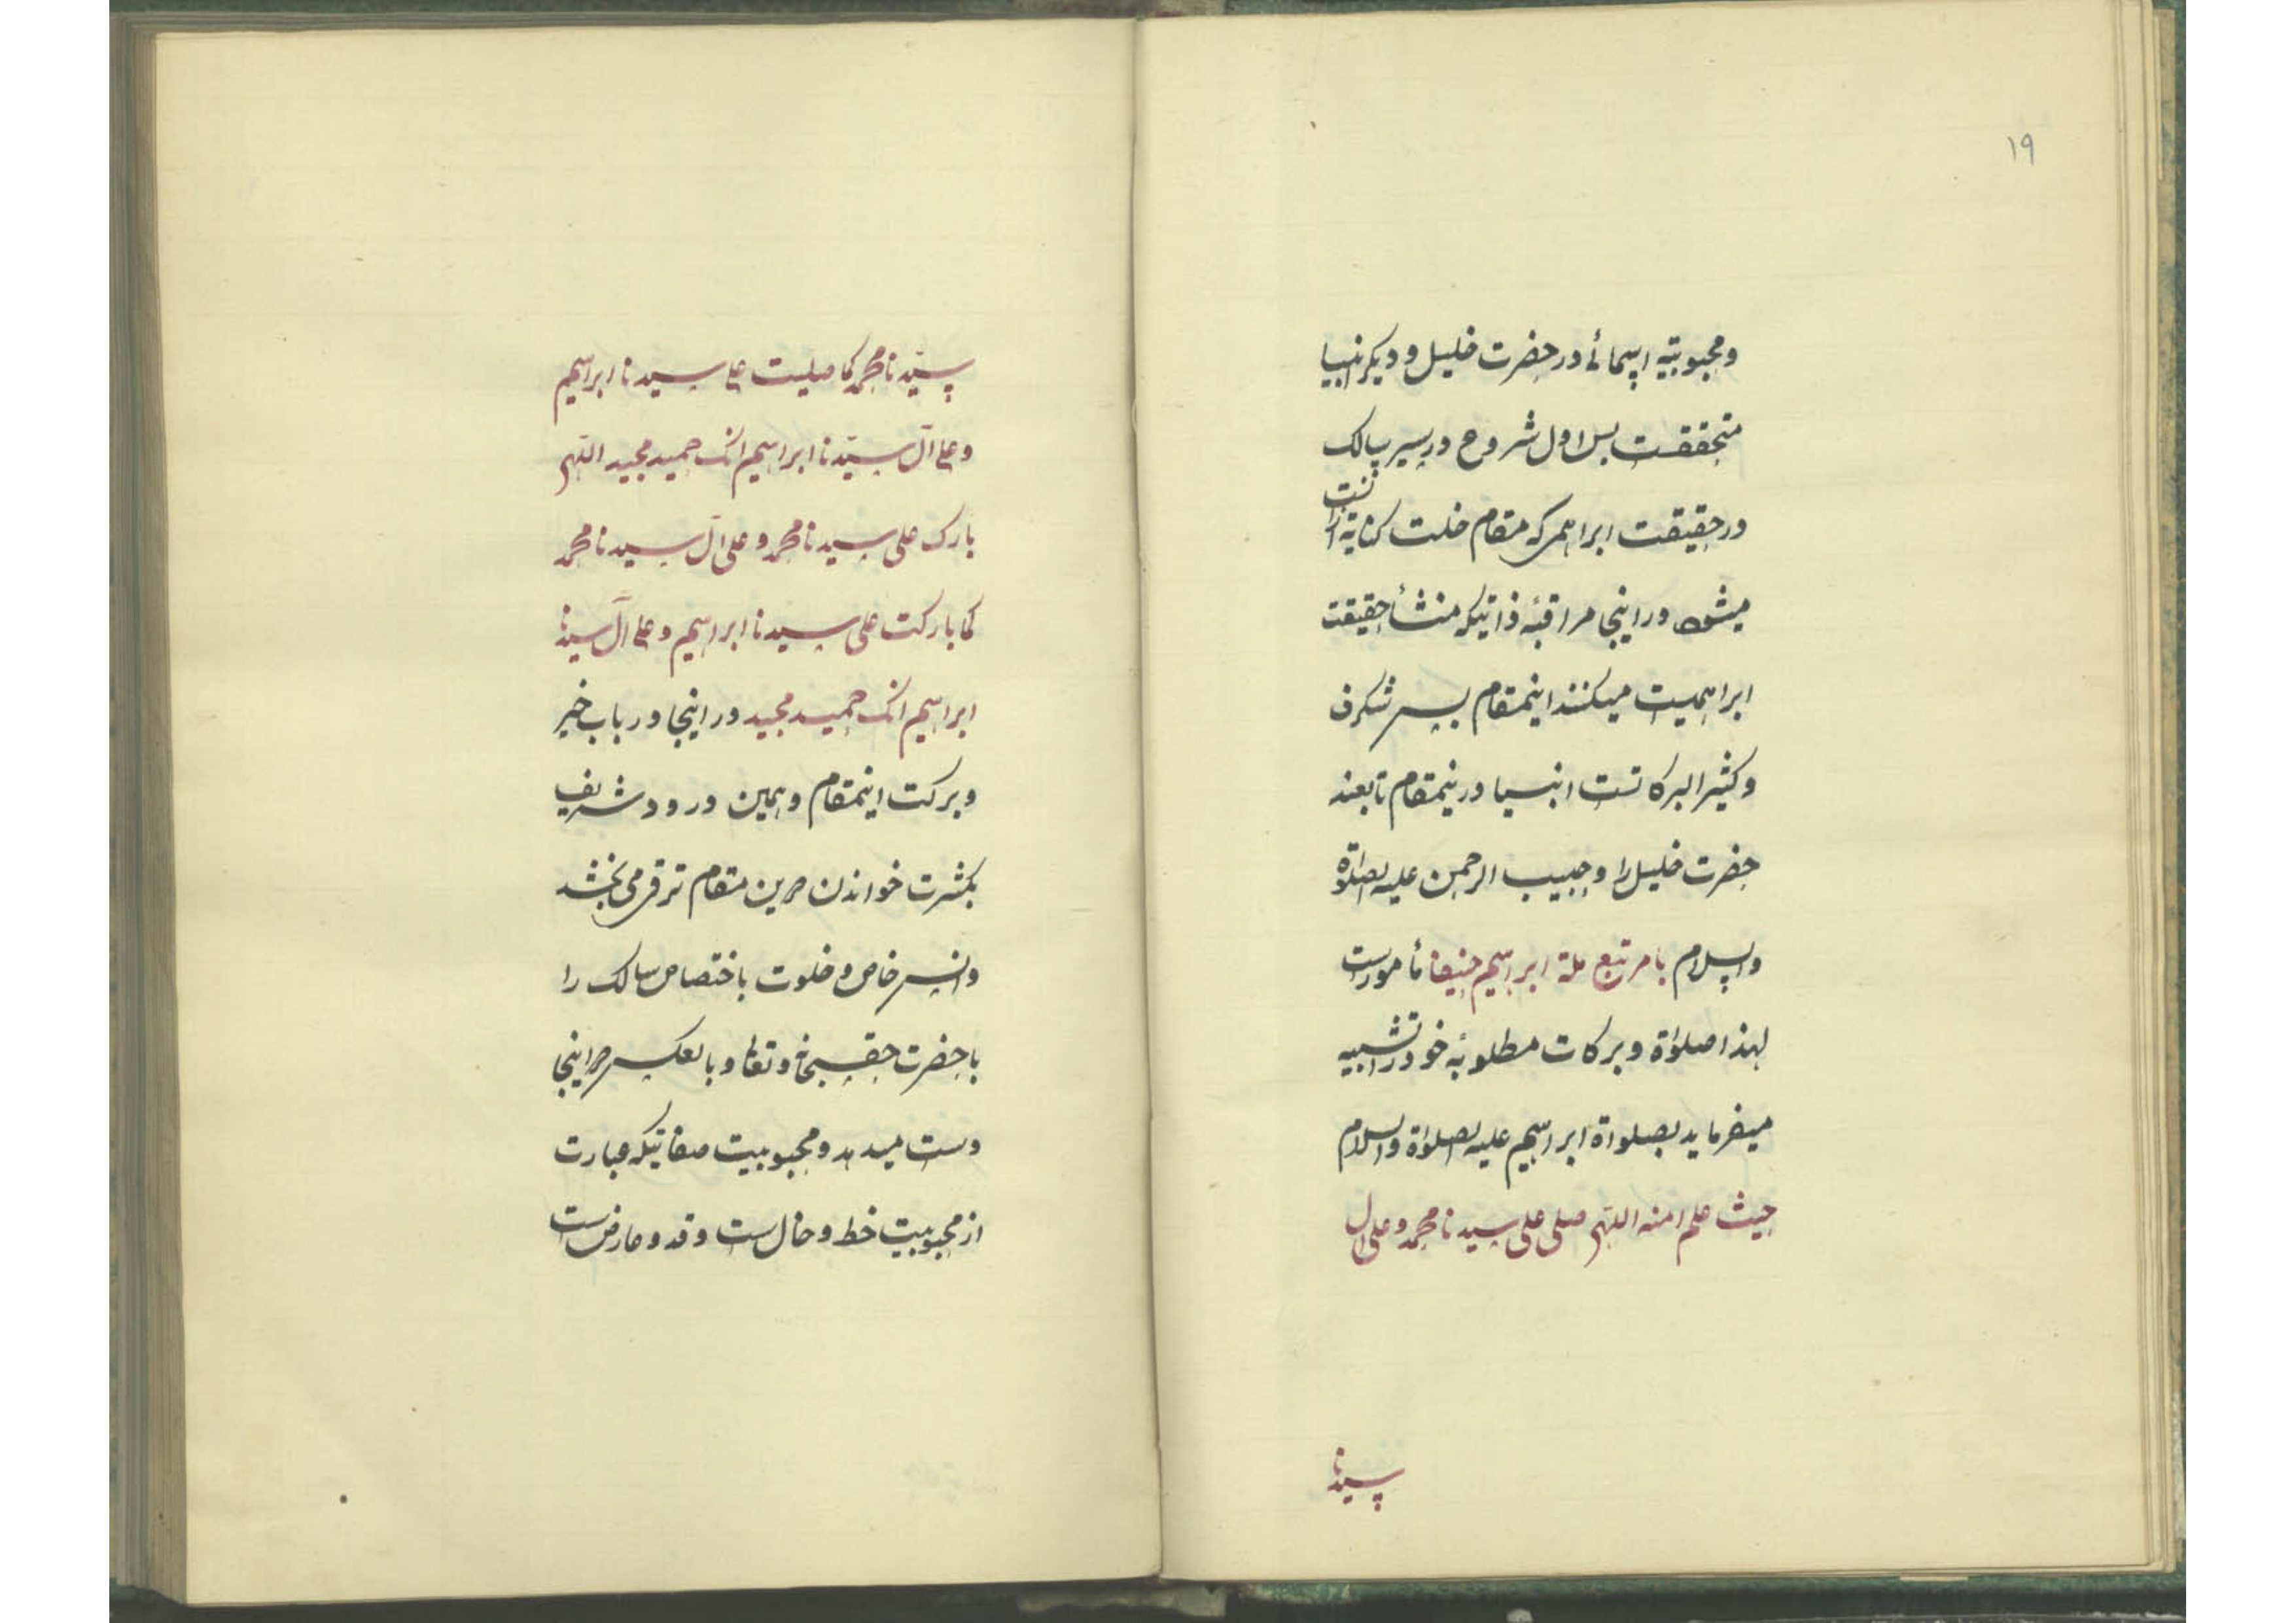 ۱۹
ومحبوبیّه اسمائے در حضرت خلیل و دیگر انبیا
متحققست پس اول شروع در سیر سالک
در حقیقت ابراهمی که مقام خلت کنایة ازنست
میشود در اینجا مراقبهٔ ذاتیکه منشأ حقیقت
ابراهمیست میکنند اینمقام بس شگرف
وکثیر البرکاتست انبیا درینمقام تابعند
حضرت خلیل را وحبیب الرحمن علیه الصلوٰة
والسلام بامر تبع ملة ابراهیم حنیفا مأمورست
لهذا صلوٰة وبرکات مطلوبهٔ خود را تشبیه
میفرماید بصلواة ابراهیم علیه الصلوٰة والسلام
حیث علم امنه اللهم صلی علی سیدنا محمد وعلی ال
سیدنا
سیّدنا محمد کما صلیت علی سیدنا ابراهیم
وعلی آل سیّدنا ابراهیم انک حمید مجید اللهم
بارک علی سیدنا محمد وعلی آل سیدنا محمد
کما بارکت علی سیدنا ابراهیم وعلی آل سیدنا
ابراهیم انک حمید مجید در اینجا در باب خیر
وبرکت اینمقام وهمین درود شریف
بکثرت خواندن درین مقام ترقی می بخشد
وانس خاص وخلوت باختصاص سالک را
باحضرت حق سبحانه وتعالی وبالعکس در اینجا
دست میدهد ومحبوبیت صفاتیکه عبارت
از محبوبیت خط وخال است وقد وعارض ست